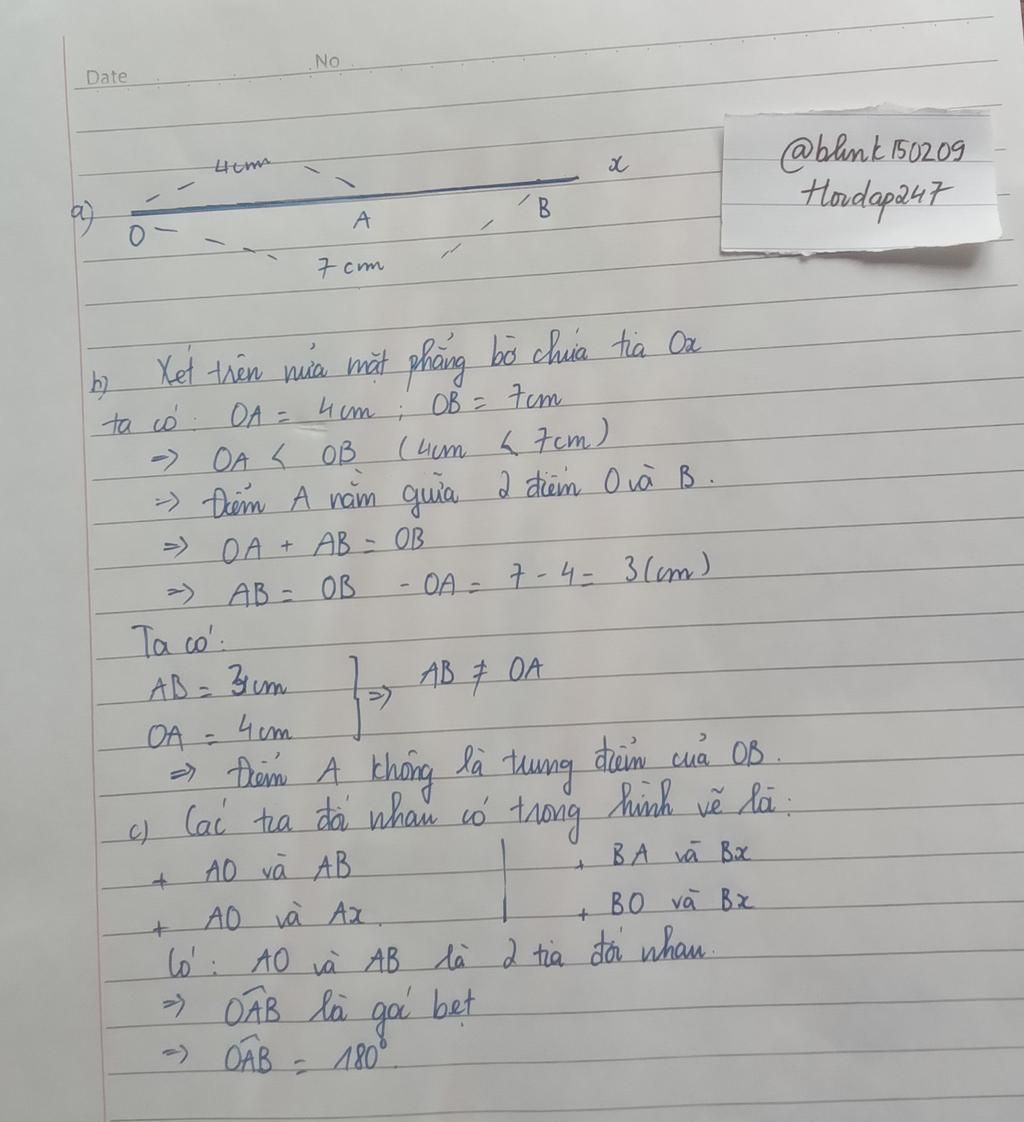 Date
No
@blink150209
Hoidap247
4cm
x
a)
O
A
B
7cm
b) Xét trên nửa mặt phẳng bờ chứa tia Ox
ta có: OA = 4cm ; OB = 7cm
=> OA < OB (4cm < 7cm)
=> Điểm A nằm giữa 2 điểm O và B.
=> OA + AB = OB
=> AB = OB - OA = 7 - 4 = 3(cm)
Ta có:
AB = 3cm
OA = 4cm
} => AB ≠ OA
=> Điểm A không là trung điểm của OB.
c) Các tia đối nhau có trong hình vẽ là:
+ AO và AB
+ AO và Ax.
+ BA và Bx
+ BO và Bx
Có: AO và AB là 2 tia đối nhau.
=> OAB là góc bẹt
=> OAB = 180°.